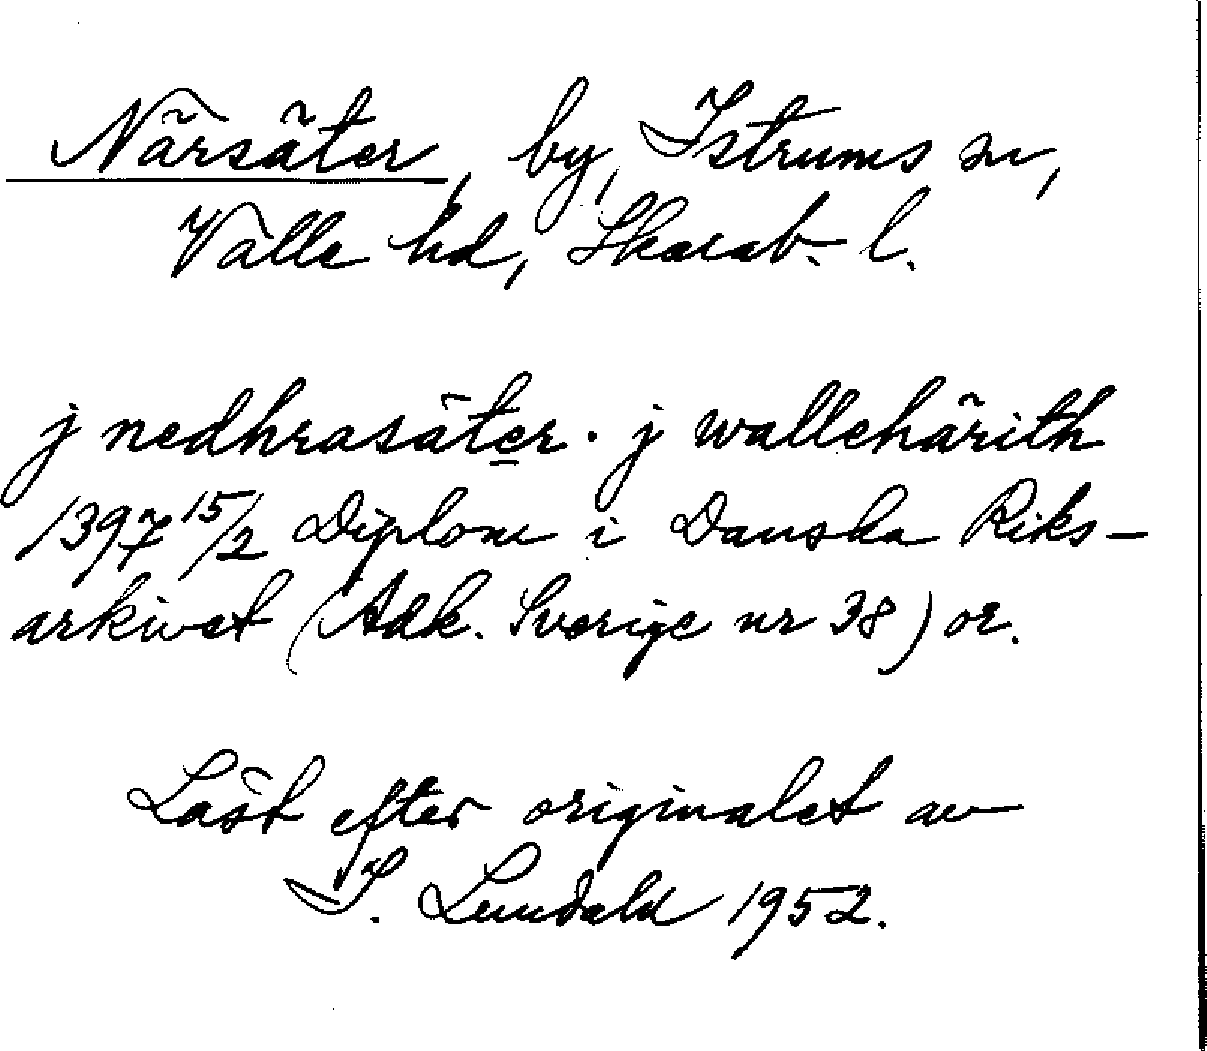 Närsäter, by, Istrums sn,
Valle hd, Skarab. l.
j nedhrasäter . j wallehärith
1397 15/2 Diplom i Danska Riks-
arkivet (Adk. Sverige nr 38) or.
Läst efter originalet av
I. Lundahl 1952.